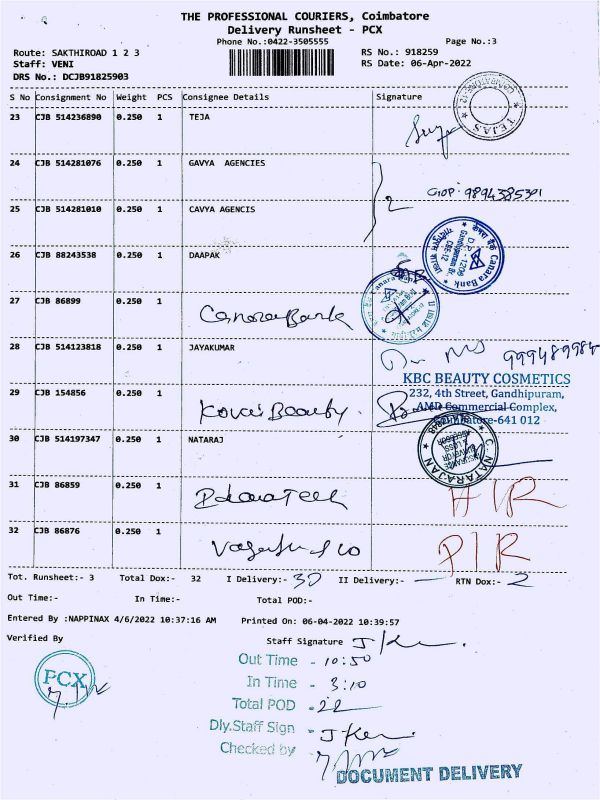 THE PROFESSIONAL COURIERS, Coimbatore
Delivery Runsheet - PCX
Phone No.:0422-3505555 Page No.:3
Route: SAKTHIROAD 1 2 3 RS No.: 918259
Staff: VENI RS Date: 06-Apr-2022
DRS No.: DCJB91825903
S No Consignment No Weight PCS Consignee Details Signature
23 CJB 514236890 0.250 1 TEJA
TEJAS
24 CJB 514281076 0.250 1 GAVYA AGENCIES
2
25 CJB 514281010 0.250 1 CAVYA AGENCIS
26 CJB 88243538 0.250 1 DAAPAK
Canara Bank
27 CJB 86899 0.250 1 Canara Bank
Canara Bank
28 CJB 514123818 0.250 1 JAYAKUMAR
KBC BEAUTY COSMETICS
232, 4th Street, Gandhipuram,
AMD Commercial Complex,
Coimbatore-641 012
29 CJB 154856 0.250 1 Kovai Beauty.
30 CJB 514197347 0.250 1 NATARAJ
C. NATARAJAN
INSURANCE
& LOSS
ASSESSOR
31 CJB 86859 0.250 1
32 CJB 86876 0.250 1
Tot. Runsheet:- 3 Total Dox:- 32 I Delivery:- 30 II Delivery:- — RTN Dox:- 2
Out Time:- In Time:- Total POD:-
Entered By :NAPPINAX 4/6/2022 10:37:16 AM Printed On: 06-04-2022 10:39:57
Verified By Staff Signature
PCX
Out Time - 10:50
In Time - 3:10
Total POD - 22
Dly.Staff Sign -
Checked by -
DOCUMENT DELIVERY